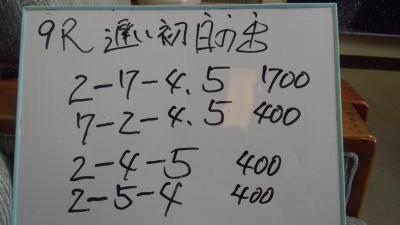 9R 遅い初日の出
2-7-4.5 1700
7-2-4.5 400
2-4-5 400
2-5-4 400